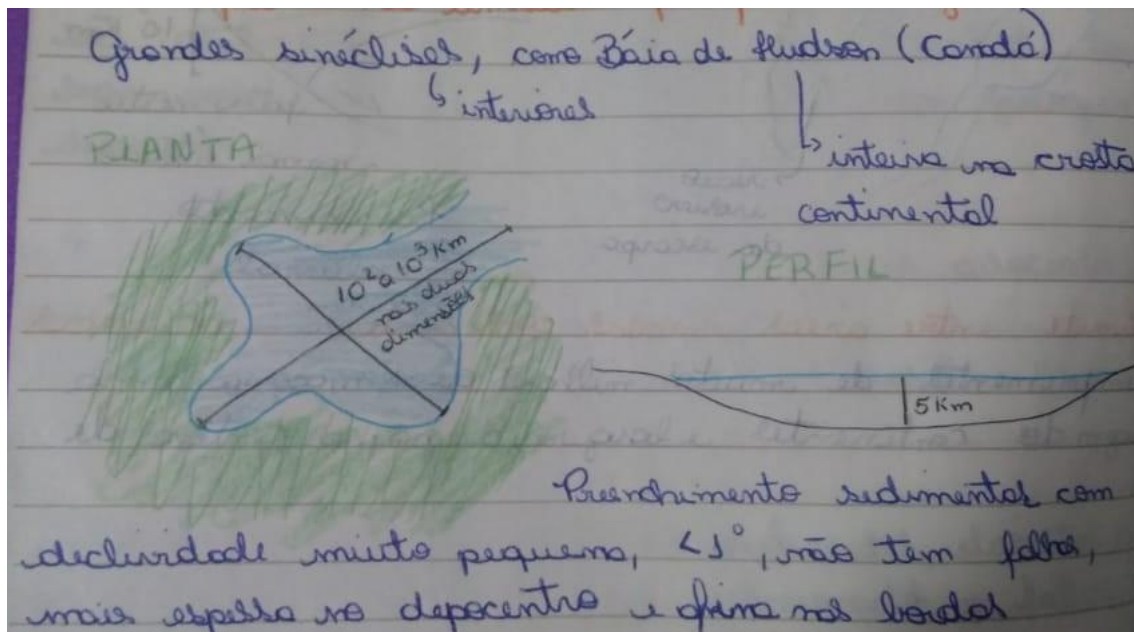 Grandes sinéclises, como Báia de Hudson (Canadá)
↳ interiores
PLANTA
↳ inteira na crosta
continental
10² a 10³ Km
nas duas
dimensões
PERFIL
5 Km
Preenchimento sedimentar com
declividade muito pequena, <1°, não tem falha,
mais espesso no depocentro e afina nas bordas